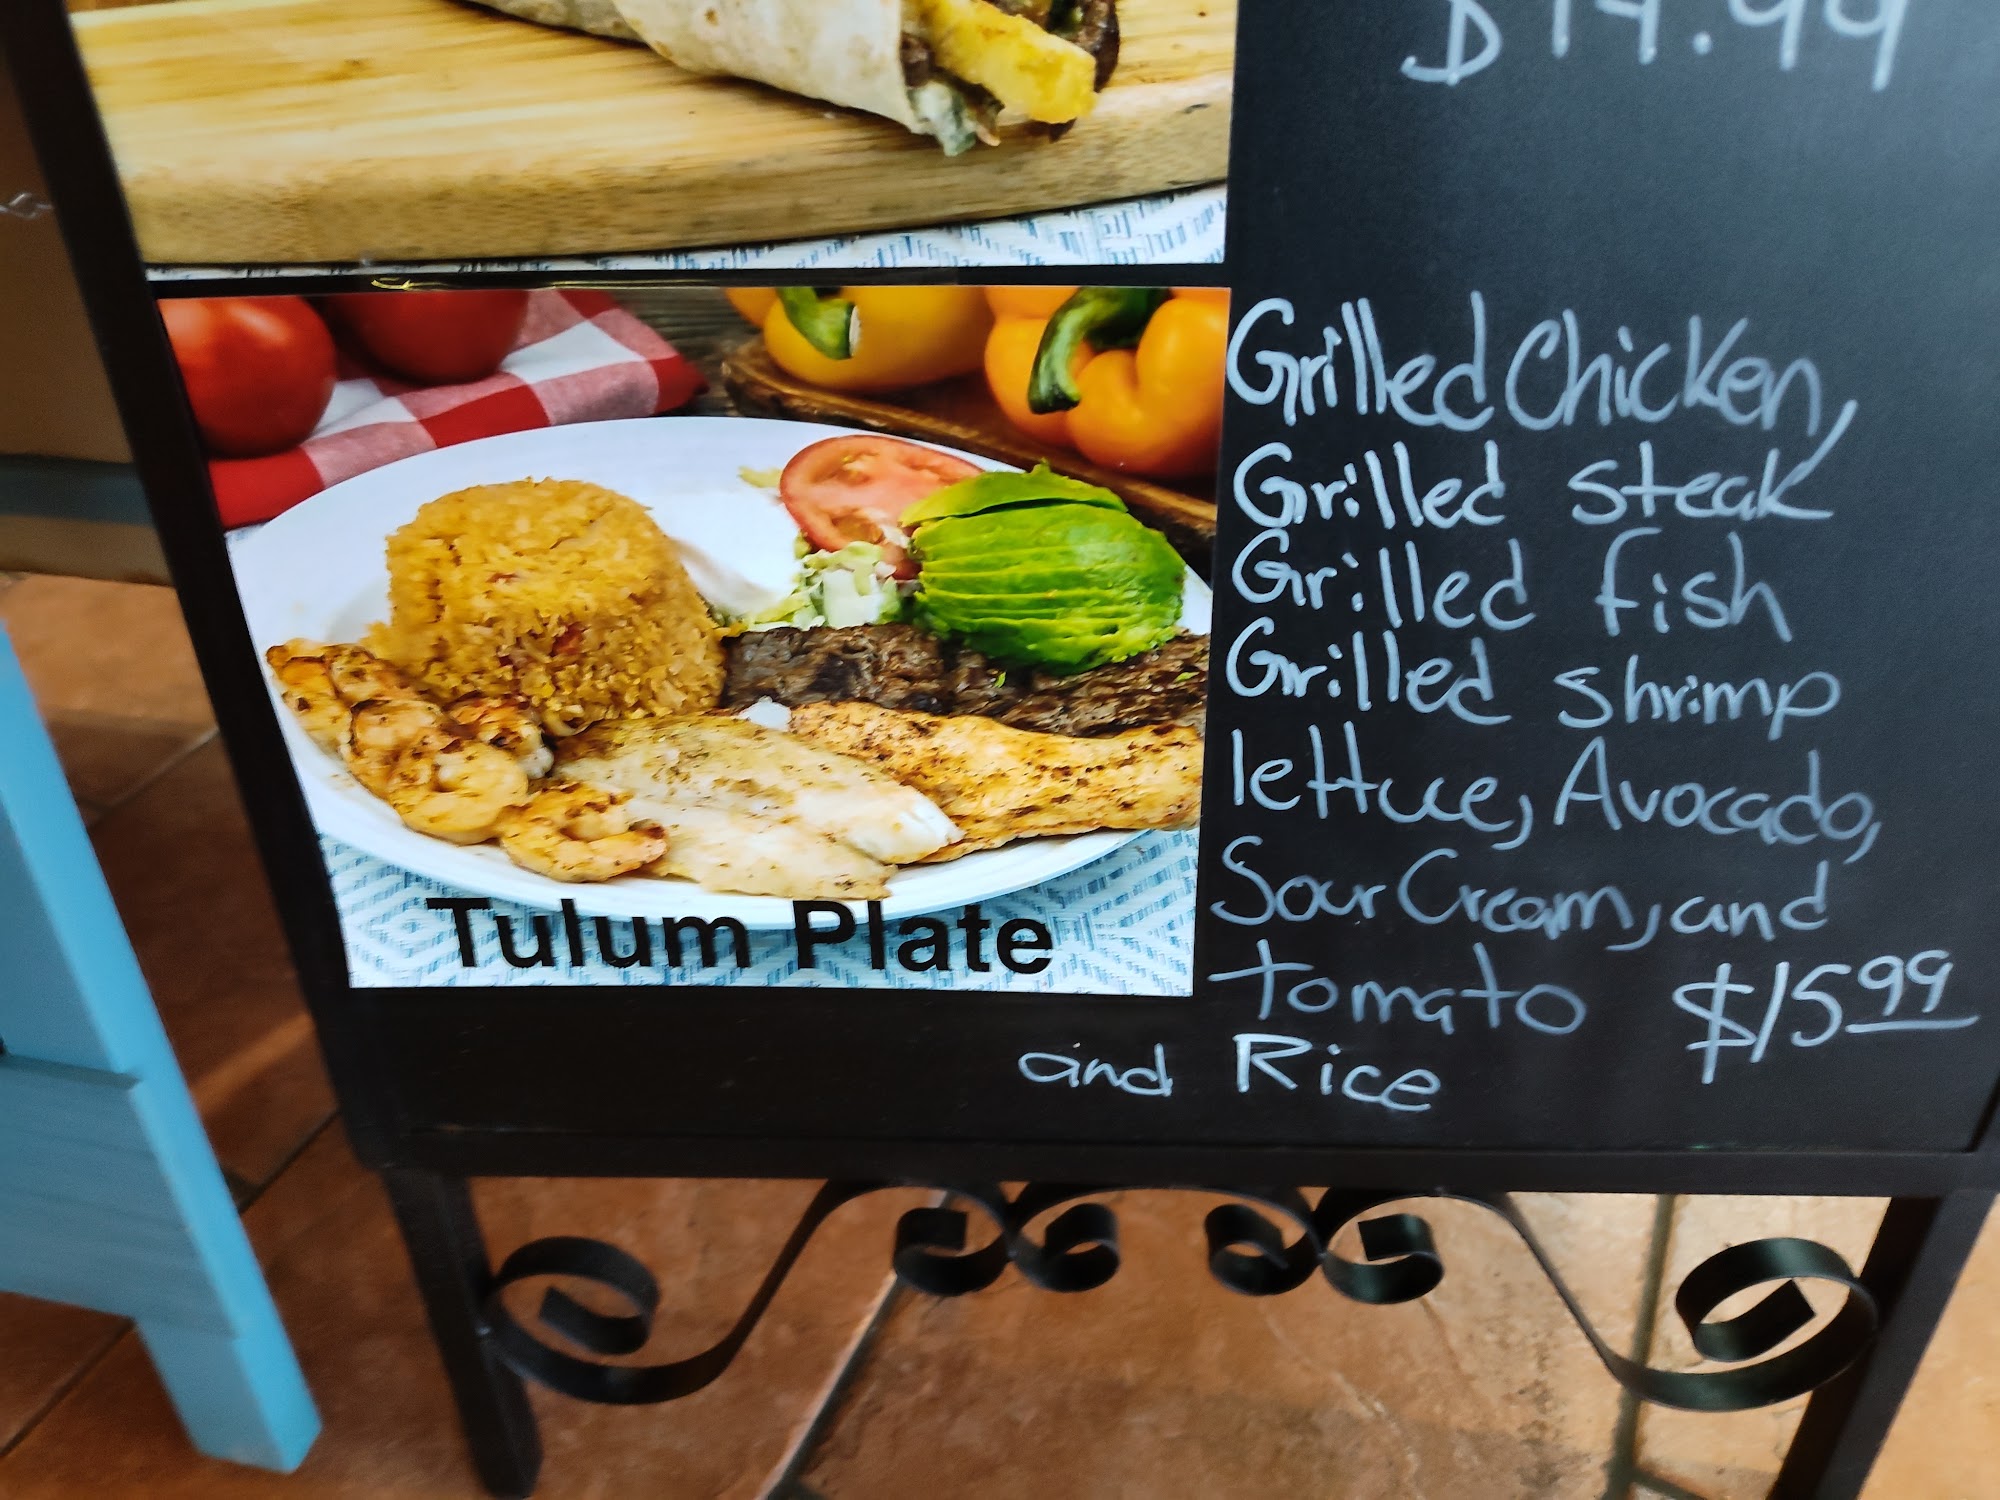 Tulum Plate
Grilled Chicken,
Grilled steak
Grilled fish
Grilled shrimp
lettuce, Avocado,
Sour Cream, and
tomato $15.99
and Rice